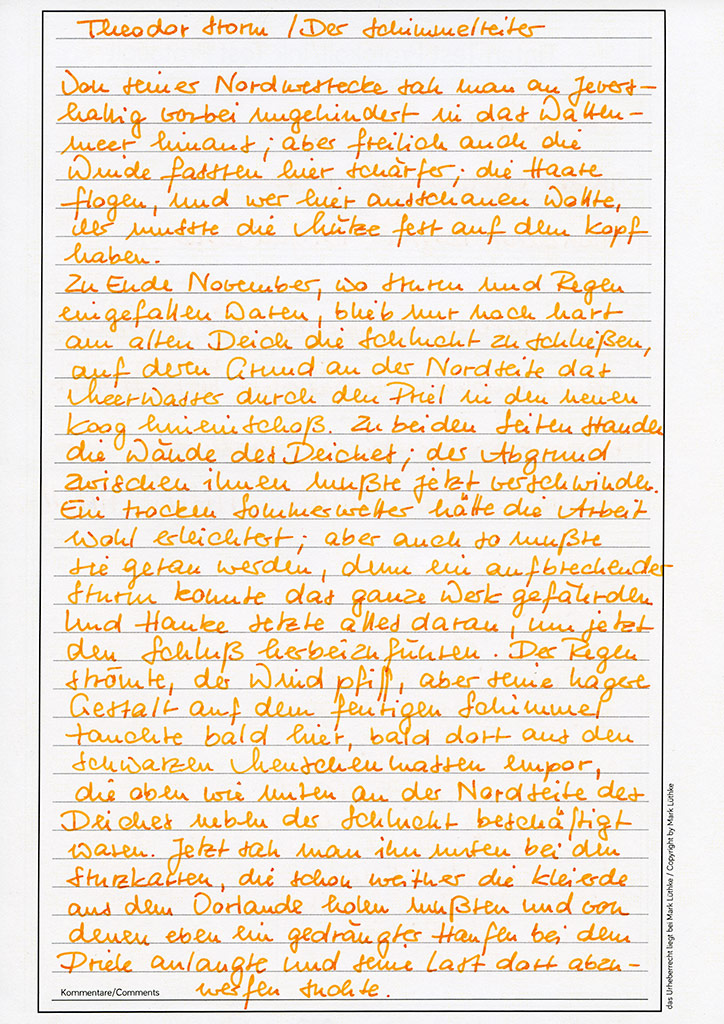 Theodor Storm / Der Schimmelreiter
Von seiner Nordwestecke sah man an Jevers-
hallig vorbei ungehindert in das Watten-
meer hinaus; aber freilich auch die
Winde fassten hier schärfer; die Haare
flogen, und wer hier ausschauen wollte,
der musste die Mütze fest auf dem Kopf
haben.
Zu Ende November, wo Sturm und Regen
eingefallen waren, blieb nur noch hart
am alten Deich die Schlucht zu schließen,
auf deren Grund an der Nordseite das
Meerwasser durch den Priel in den neuen
Koog hineinschoß. Zu beiden Seiten standen
die Wände des Deiches; der Abgrund
zwischen ihnen mußte jetzt verschwinden.
Ein trocken Sommerwetter hätte die Arbeit
wohl erleichtert; aber auch so mußte
sie getan werden, denn ein aufbrechender
Sturm konnte das ganze Werk gefährden
Und Hauke setzte alles daran, um jetzt
den Schluß herbeizuführen. Der Regen
strömte, der Wind pfiff, aber seine hagere
Gestalt auf dem feurigen Schimmel
tauchte bald hier, bald dort aus den
schwarzen Menschenmassen empor,
die oben wie unten an der Nordseite des
Deiches neben der Schlucht beschäftigt
waren. Jetzt sah man ihn unten bei den
Sturzkarren, die schon weither die Kleierde
aus dem Vorlande holen mußten und von
denen eben ein gedrängter Haufen bei dem
Priele anlangte und seine Last dort abzu-
werfen suchte.
Kommentare/Comments
das Urheberrecht liegt bei Mark Lüthke / Copyright by Mark Lüthke